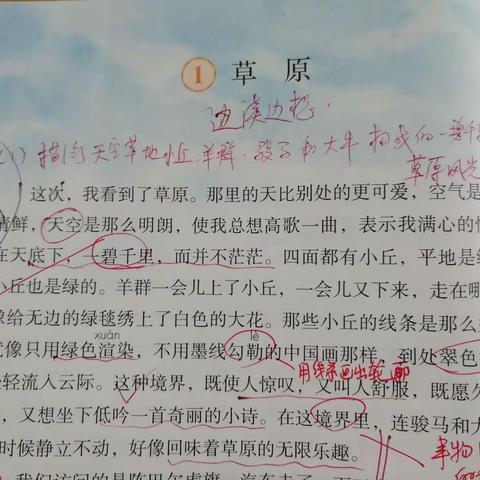 1 草原
边读边想
这次，我看到了草原。那里的天比别处的更可爱，空气是
清鲜，天空是那么明朗，使我总想高歌一曲，表示我满心的
在天底下，一碧千里，而并不茫茫。四面都有小丘，平地是
小丘也是绿的。羊群一会儿上了小丘，一会儿又下来，走在哪
像给无边的绿毯绣上了白色的大花。那些小丘的线条是那么
xuàn lè
就像只用绿色渲染，不用墨线勾勒的中国画那样，到处翠色
轻流入云际。这种境界，既使人惊叹，又叫人舒服，既愿久
，又想坐下低吟一首奇丽的小诗。在这境界里，连骏马和大
时候静立不动，好像回味着草原的无限乐趣。
事物
我们访问的是陈巴尔虎旗